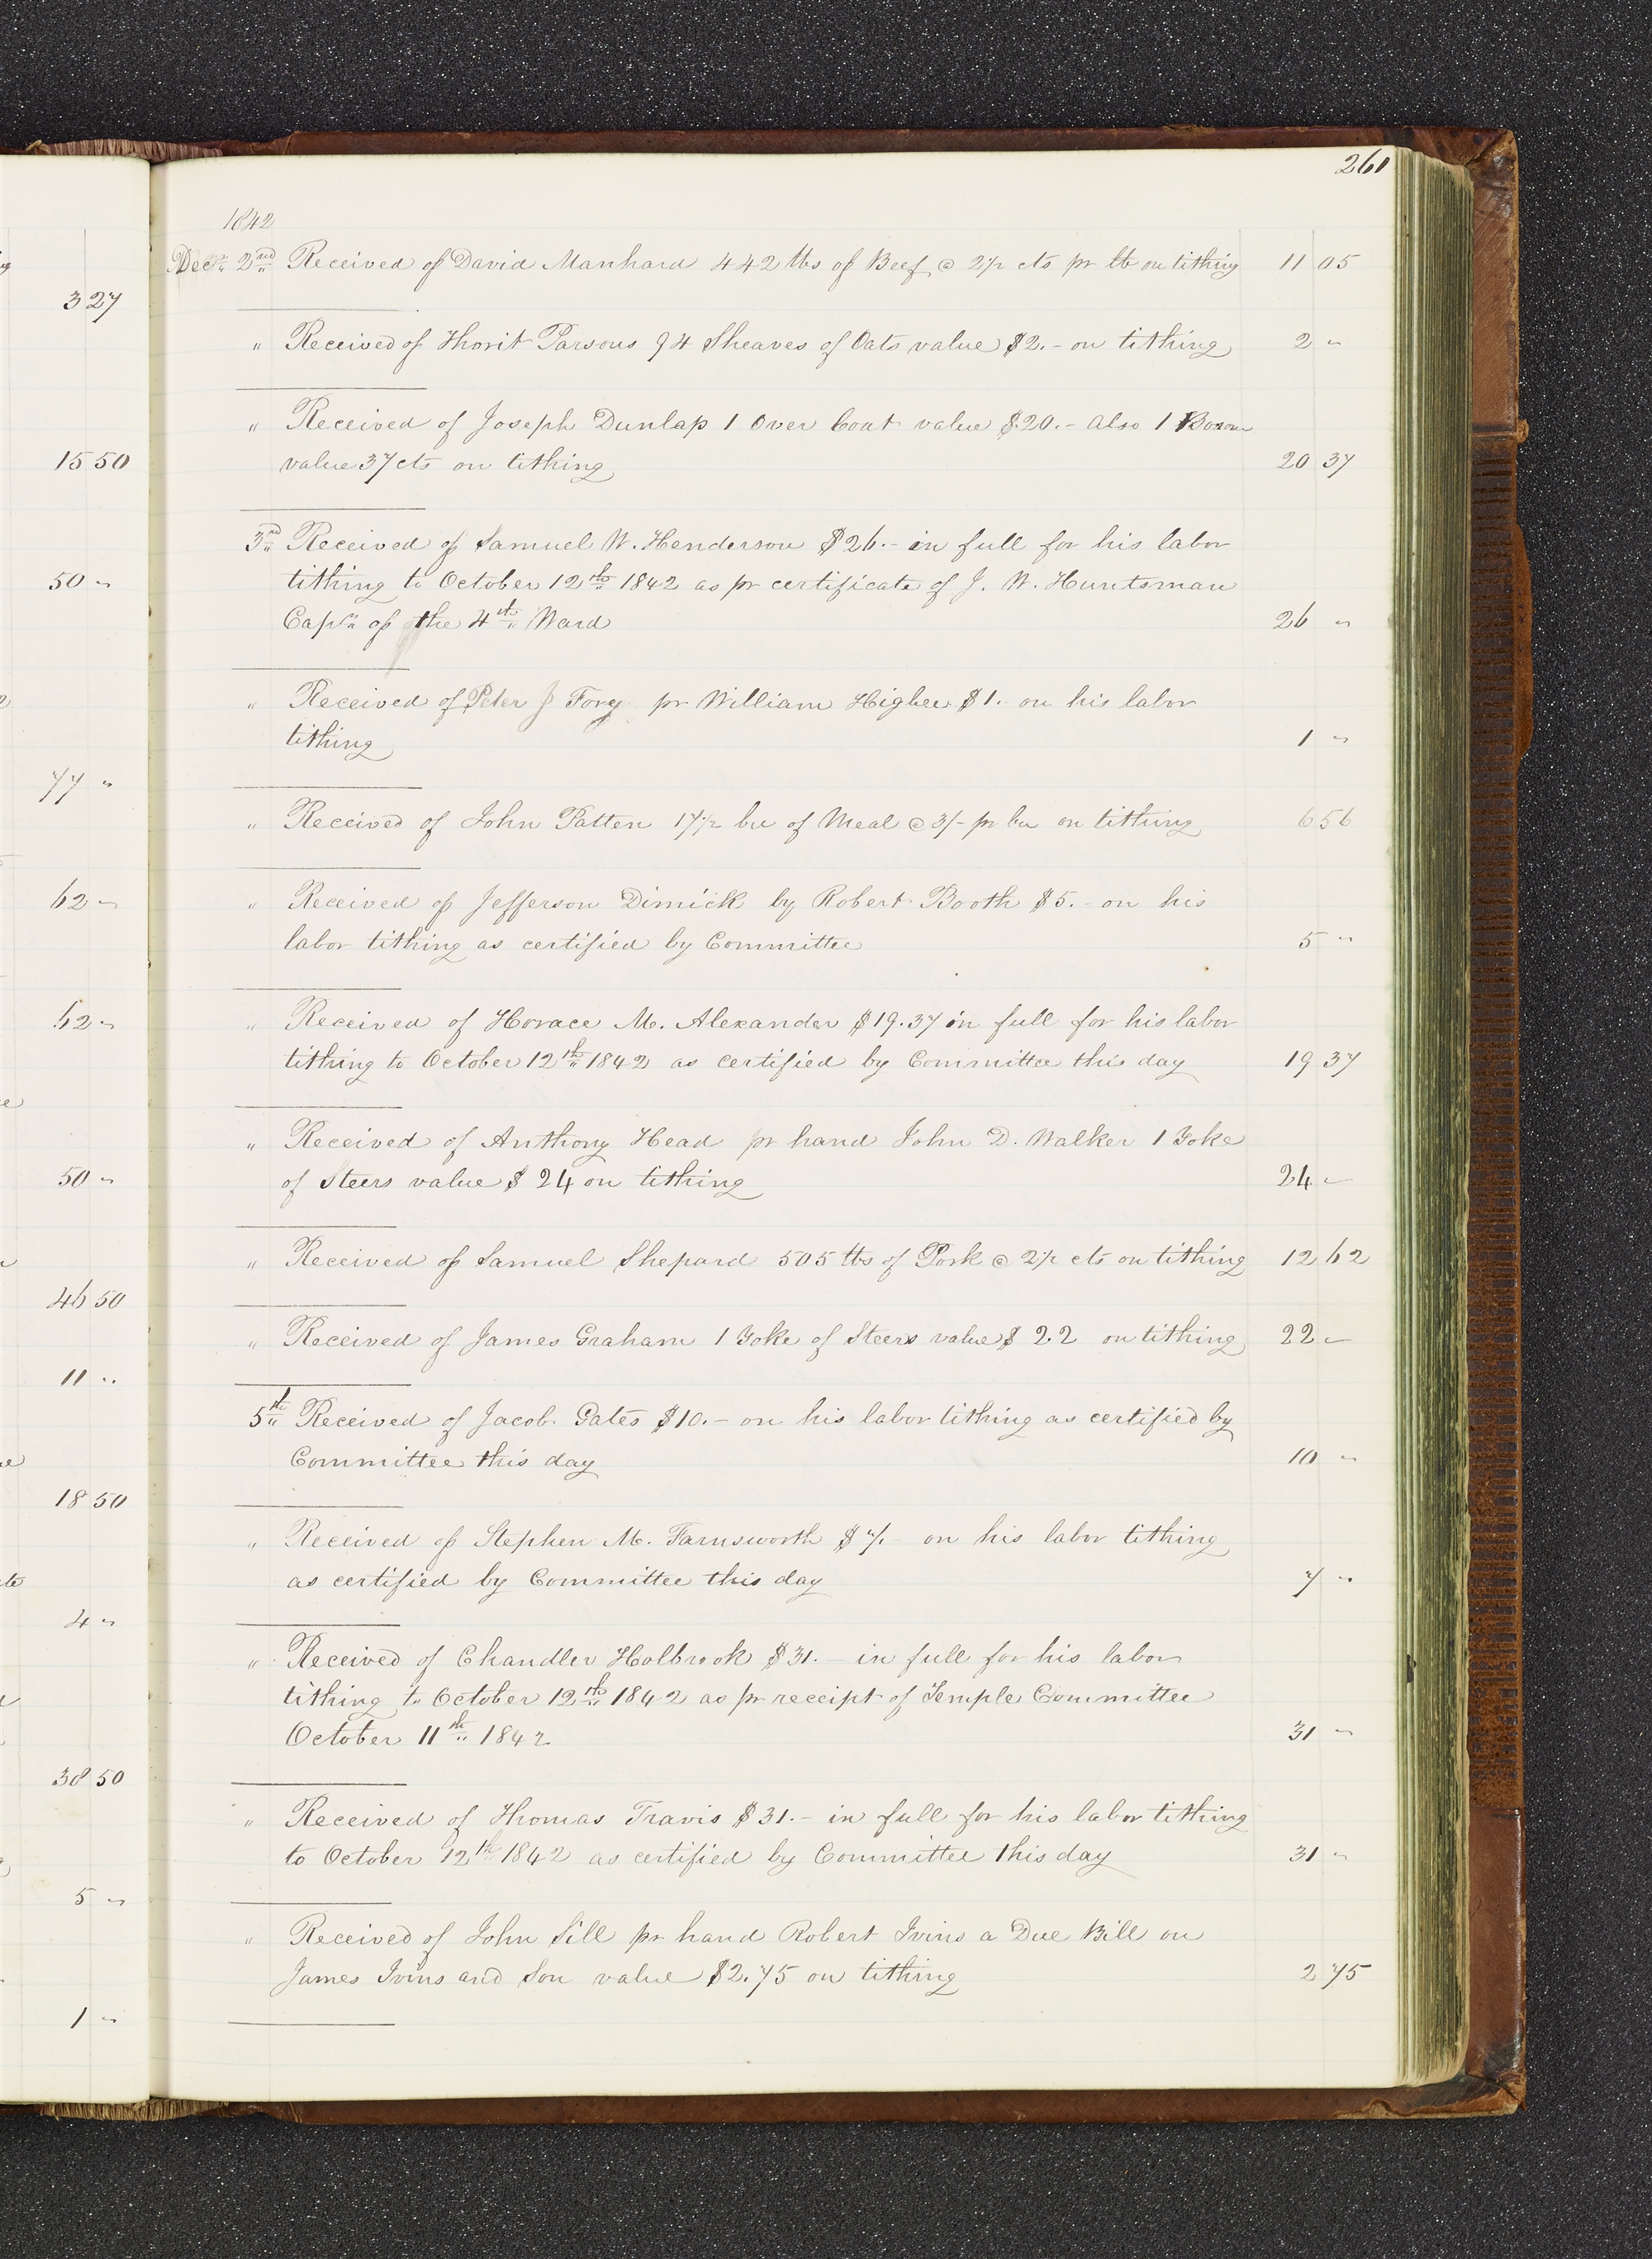 261
1842
Decr. 2nd Received of David Manhard 442 lbs of Beef @ 2 1/2 cts pr lb on tithing 11 05
" Received of Thorit Parsons 94 Sheaves of Oats value $2.- on tithing 2 "
" Received of Joseph Dunlap 1 Over Coat value $.20.- also 1 Bosom
value 37 cts on tithing 20 37
3rd Received of Samuel W. Henderson $26.- in full for his labor
tithing to October 12th 1842 as pr certificate of J. W. Huntsman
Captn of the 4th Ward 26 "
" Received of Peter J Fory pr William Higbee $1. on his labor
tithing 1 "
" Received of John Patten 17 1/2 bu of Meal @ 3/- pr bu on tithing 6 56
" Received of Jefferson Dimick by Robert Booth $5.- on his
labor tithing as certified by Committee 5 "
" Received of Horace M. Alexander $19.37 in full for his labor
tithing to October 12th 1842 as certified by Committee this day 19 37
" Received of Anthony Head pr hand John D. Walker 1 Yoke
of Steers value $ 24 on tithing 24 "
" Received of Samuel Shepard 505 lbs of Pork @ 2 1/2 cts on tithing 12 62
" Received of James Graham 1 Yoke of Steers value $ 2.2 on tithing 22 "
5th Received of Jacob Gates $10.- on his labor tithing as certified by
Committee this day 10 "
" Received of Stephen M. Farnsworth $7.- on his labor tithing
as certified by Committee this day 7 "
" Received of Chandler Holbrook $31.- in full for his labor
tithing to October 12th 1842 as pr receipt of Temple Committee
October 11th 1842 31 "
" Received of Thomas Travis $31.- in full for his labor tithing
to October 12th 1842 as certified by Committee this day 31 "
" Received of John Sill pr hand Robert Ivins a Due Bill on
James Ivins and Son value $2.75 on tithing 2 75
3 27
15 50
50 "
77 "
62 "
62 "
50 "
46 50
11 "
18 50
4 "
38 50
5 "
1 "